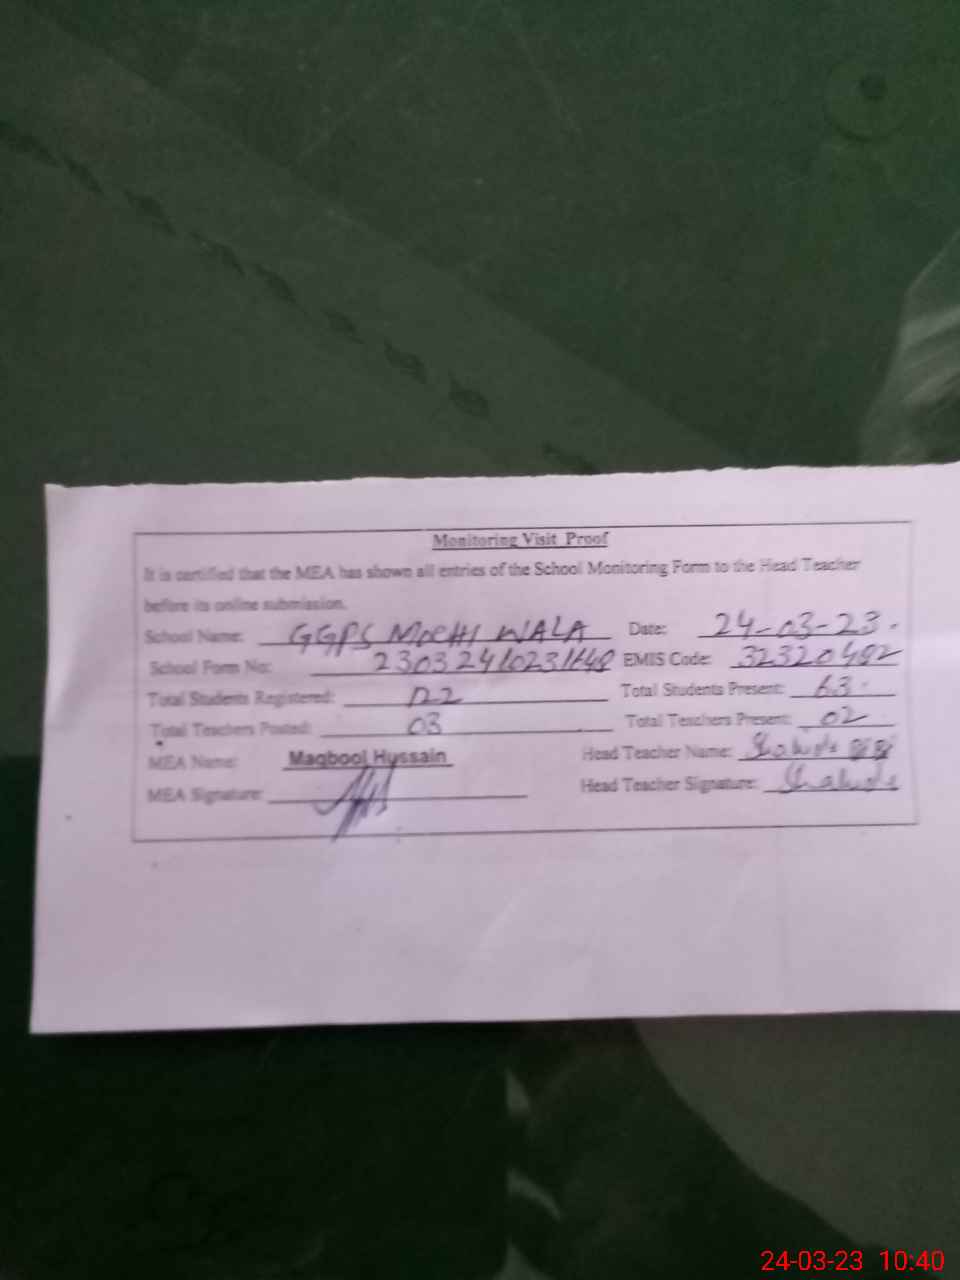 Monitoring Visit Proof
It is certified that the MEA has shown all entries of the School Monitoring Form to the Head Teacher
before its online submission.
School Name: GGPS MOCHI WALA Date: 24-03-23.
School Form No: EMIS Code: 32320492
Total Students Registered: Total Students Present: 63
Total Teachers Posted: 03 Total Teachers Present: 02
MEA Name: Maqbool Hussain Head Teacher Name:
MEA Signature: Head Teacher Signature:
24-03-23 10:40